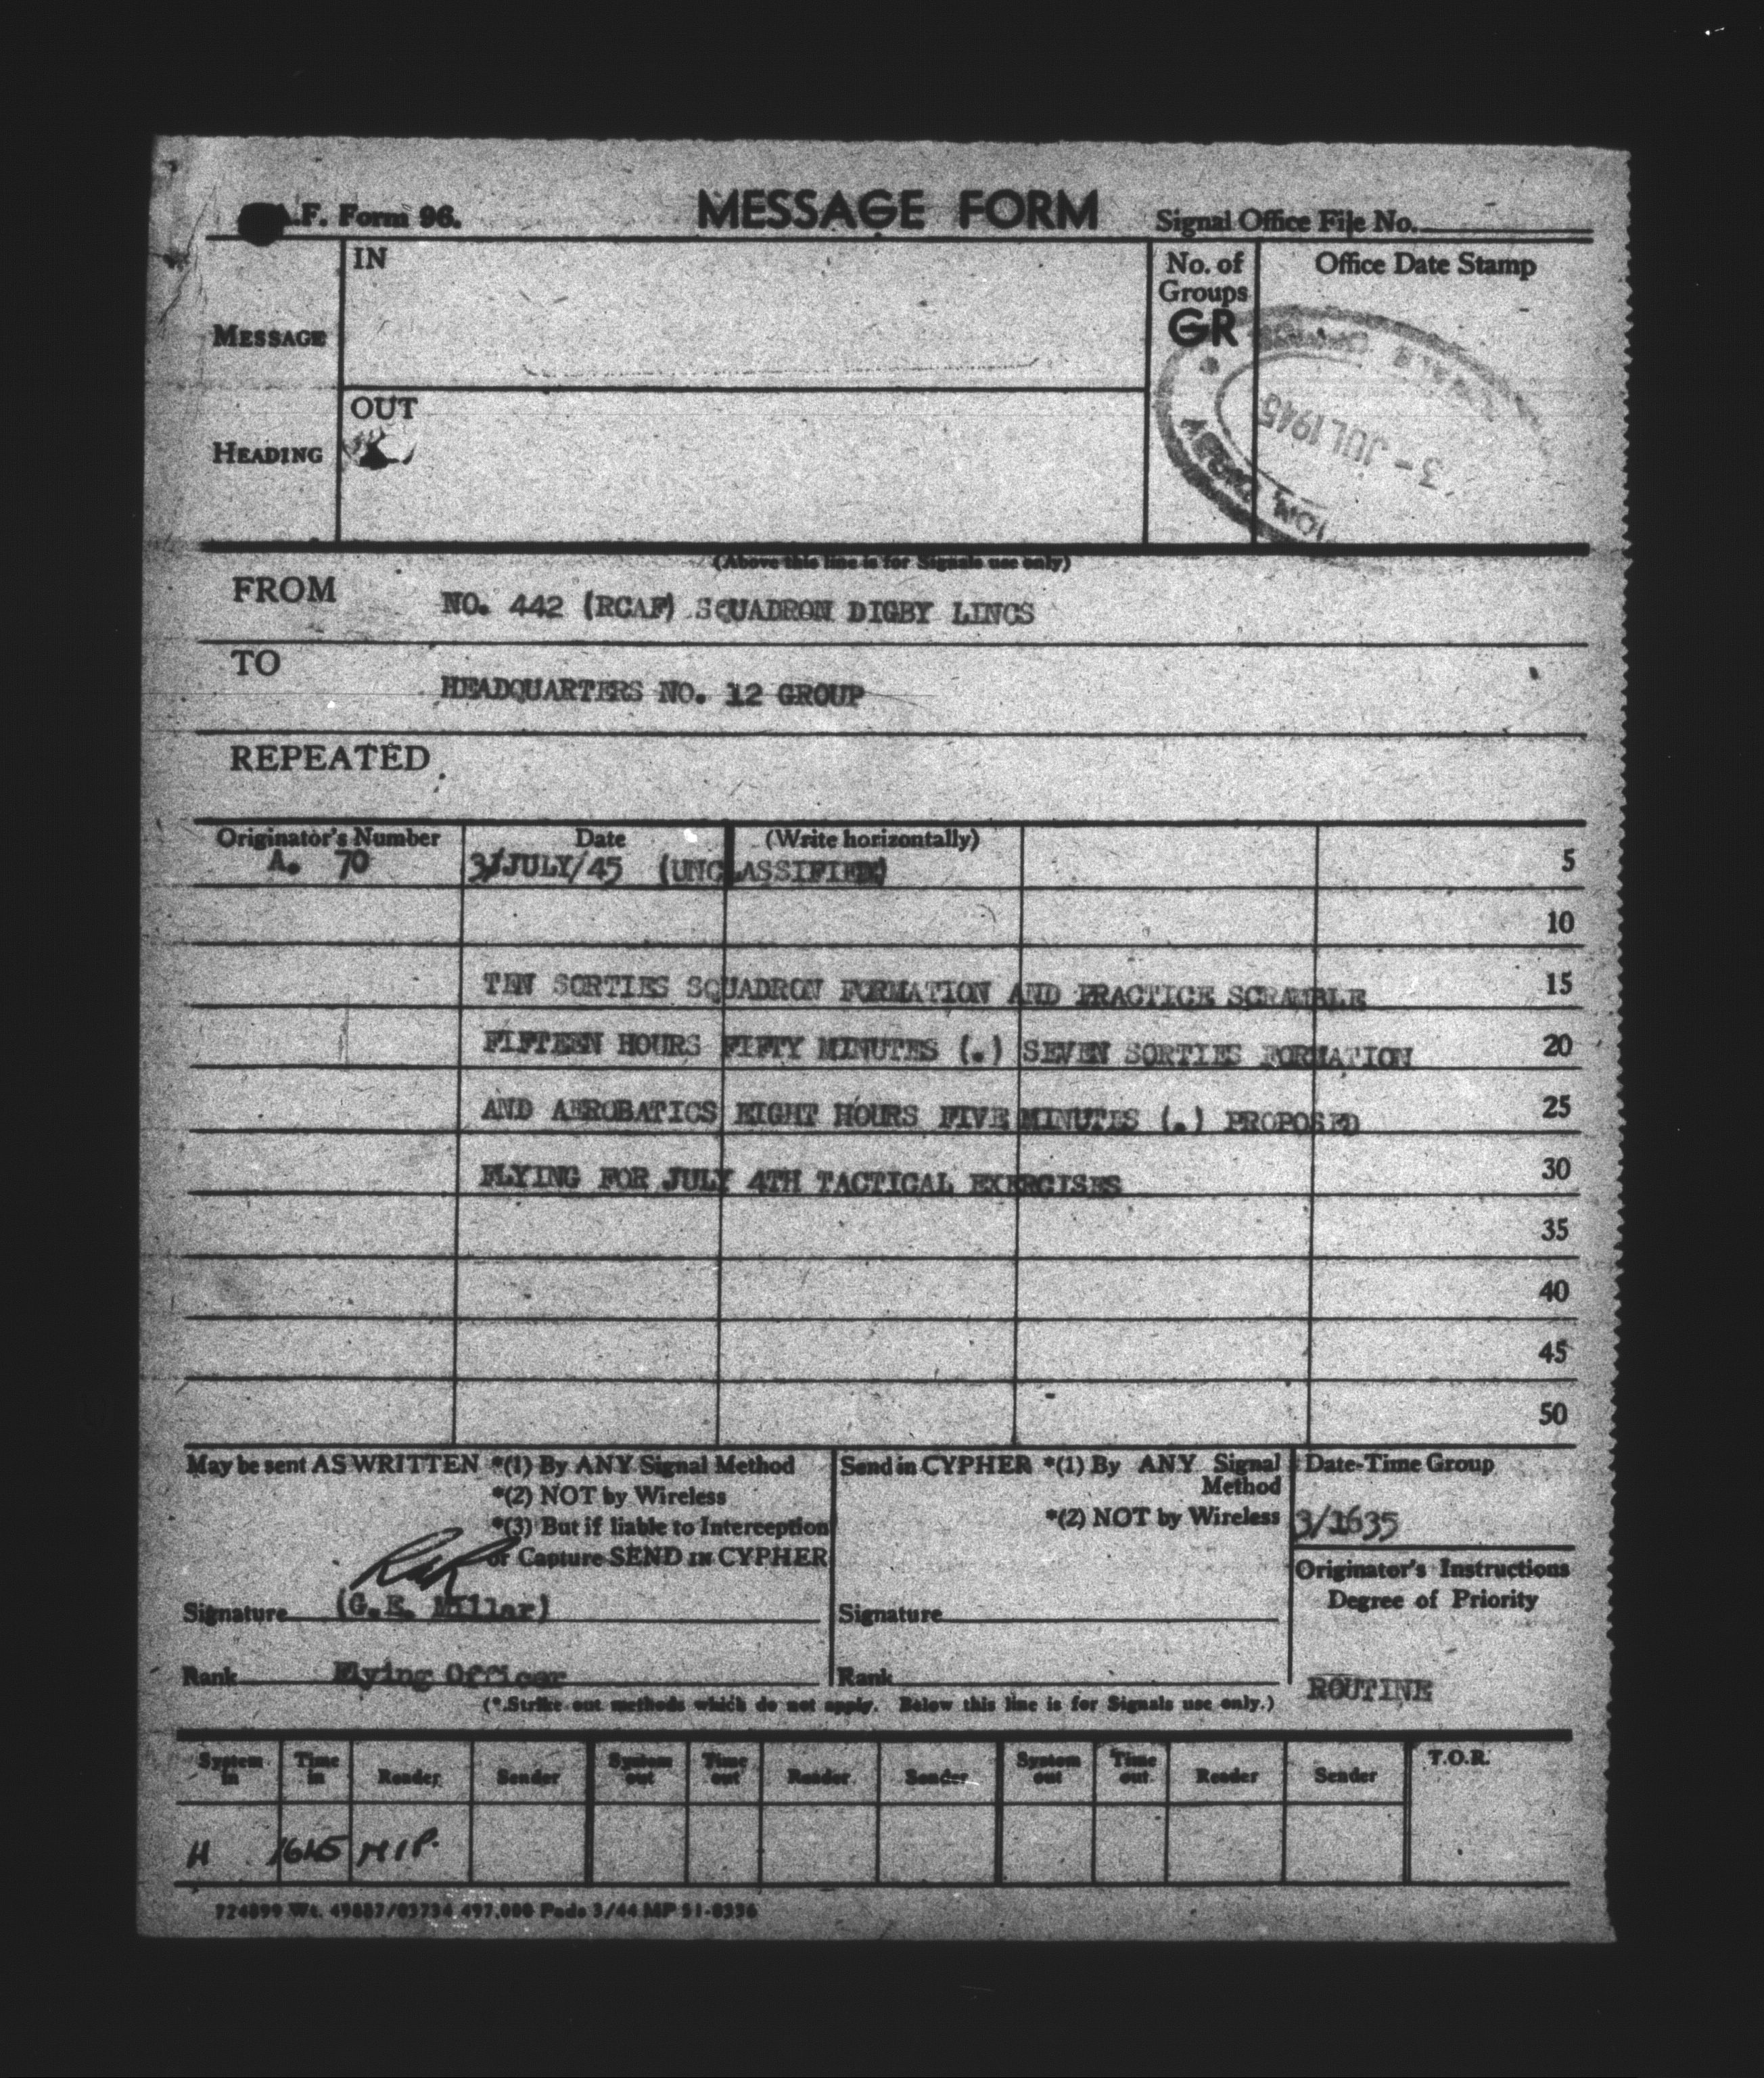 .F. Form 96.
MESSAGE FORM
Signal Office File No.
IN
No. of
Groups
GR
Office Date Stamp
MESSAGE
3 - JUL 1945
DIGBY
OUT
HEADING
(Above this line is for Signals use only)
FROM
NO. 442 (RCAF) SQUADRON DIGBY LINCS
TO
HEADQUARTERS NO. 12 GROUP
REPEATED
Originator's Number
Date
(Write horizontally)
A. 70
3/JULY/45 (UNCLASSIFIED)
5
10
TEN SORTIES SQUADRON FORMATION AND PRACTICE SCRAMBLE
15
FIFTEEN HOURS FIFTY MINUTES (.) SEVEN SORTIES FORMATION
20
AND AEROBATICS EIGHT HOURS FIVE MINUTES (.) PROPOSED
25
FLYING FOR JULY 4TH TACTICAL EXERCISES
30
35
40
45
50
May be sent AS WRITTEN *(1) By ANY Signal Method
*(2) NOT by Wireless
*(3) But if liable to Interception
or Capture SEND IN CYPHER
Signature (G.E. Millar)
Rank Flying Officer
Send in CYPHER *(1) By ANY Signal
Method
*(2) NOT by Wireless
Signature
Rank
Date-Time Group
3/1635
Originator's Instructions
Degree of Priority
ROUTINE
(*.Strike out methods which do not apply. Below this line is for Signals use only.)
System in
Time in
Reader
Sender
System out
Time out
Reader
Sender
System out
Time out
Reader
Sender
T.O.R.
H 1645 MIP.
724899 Wt. 49887/03734 497,000 Pads 3/44 MP 51-8336